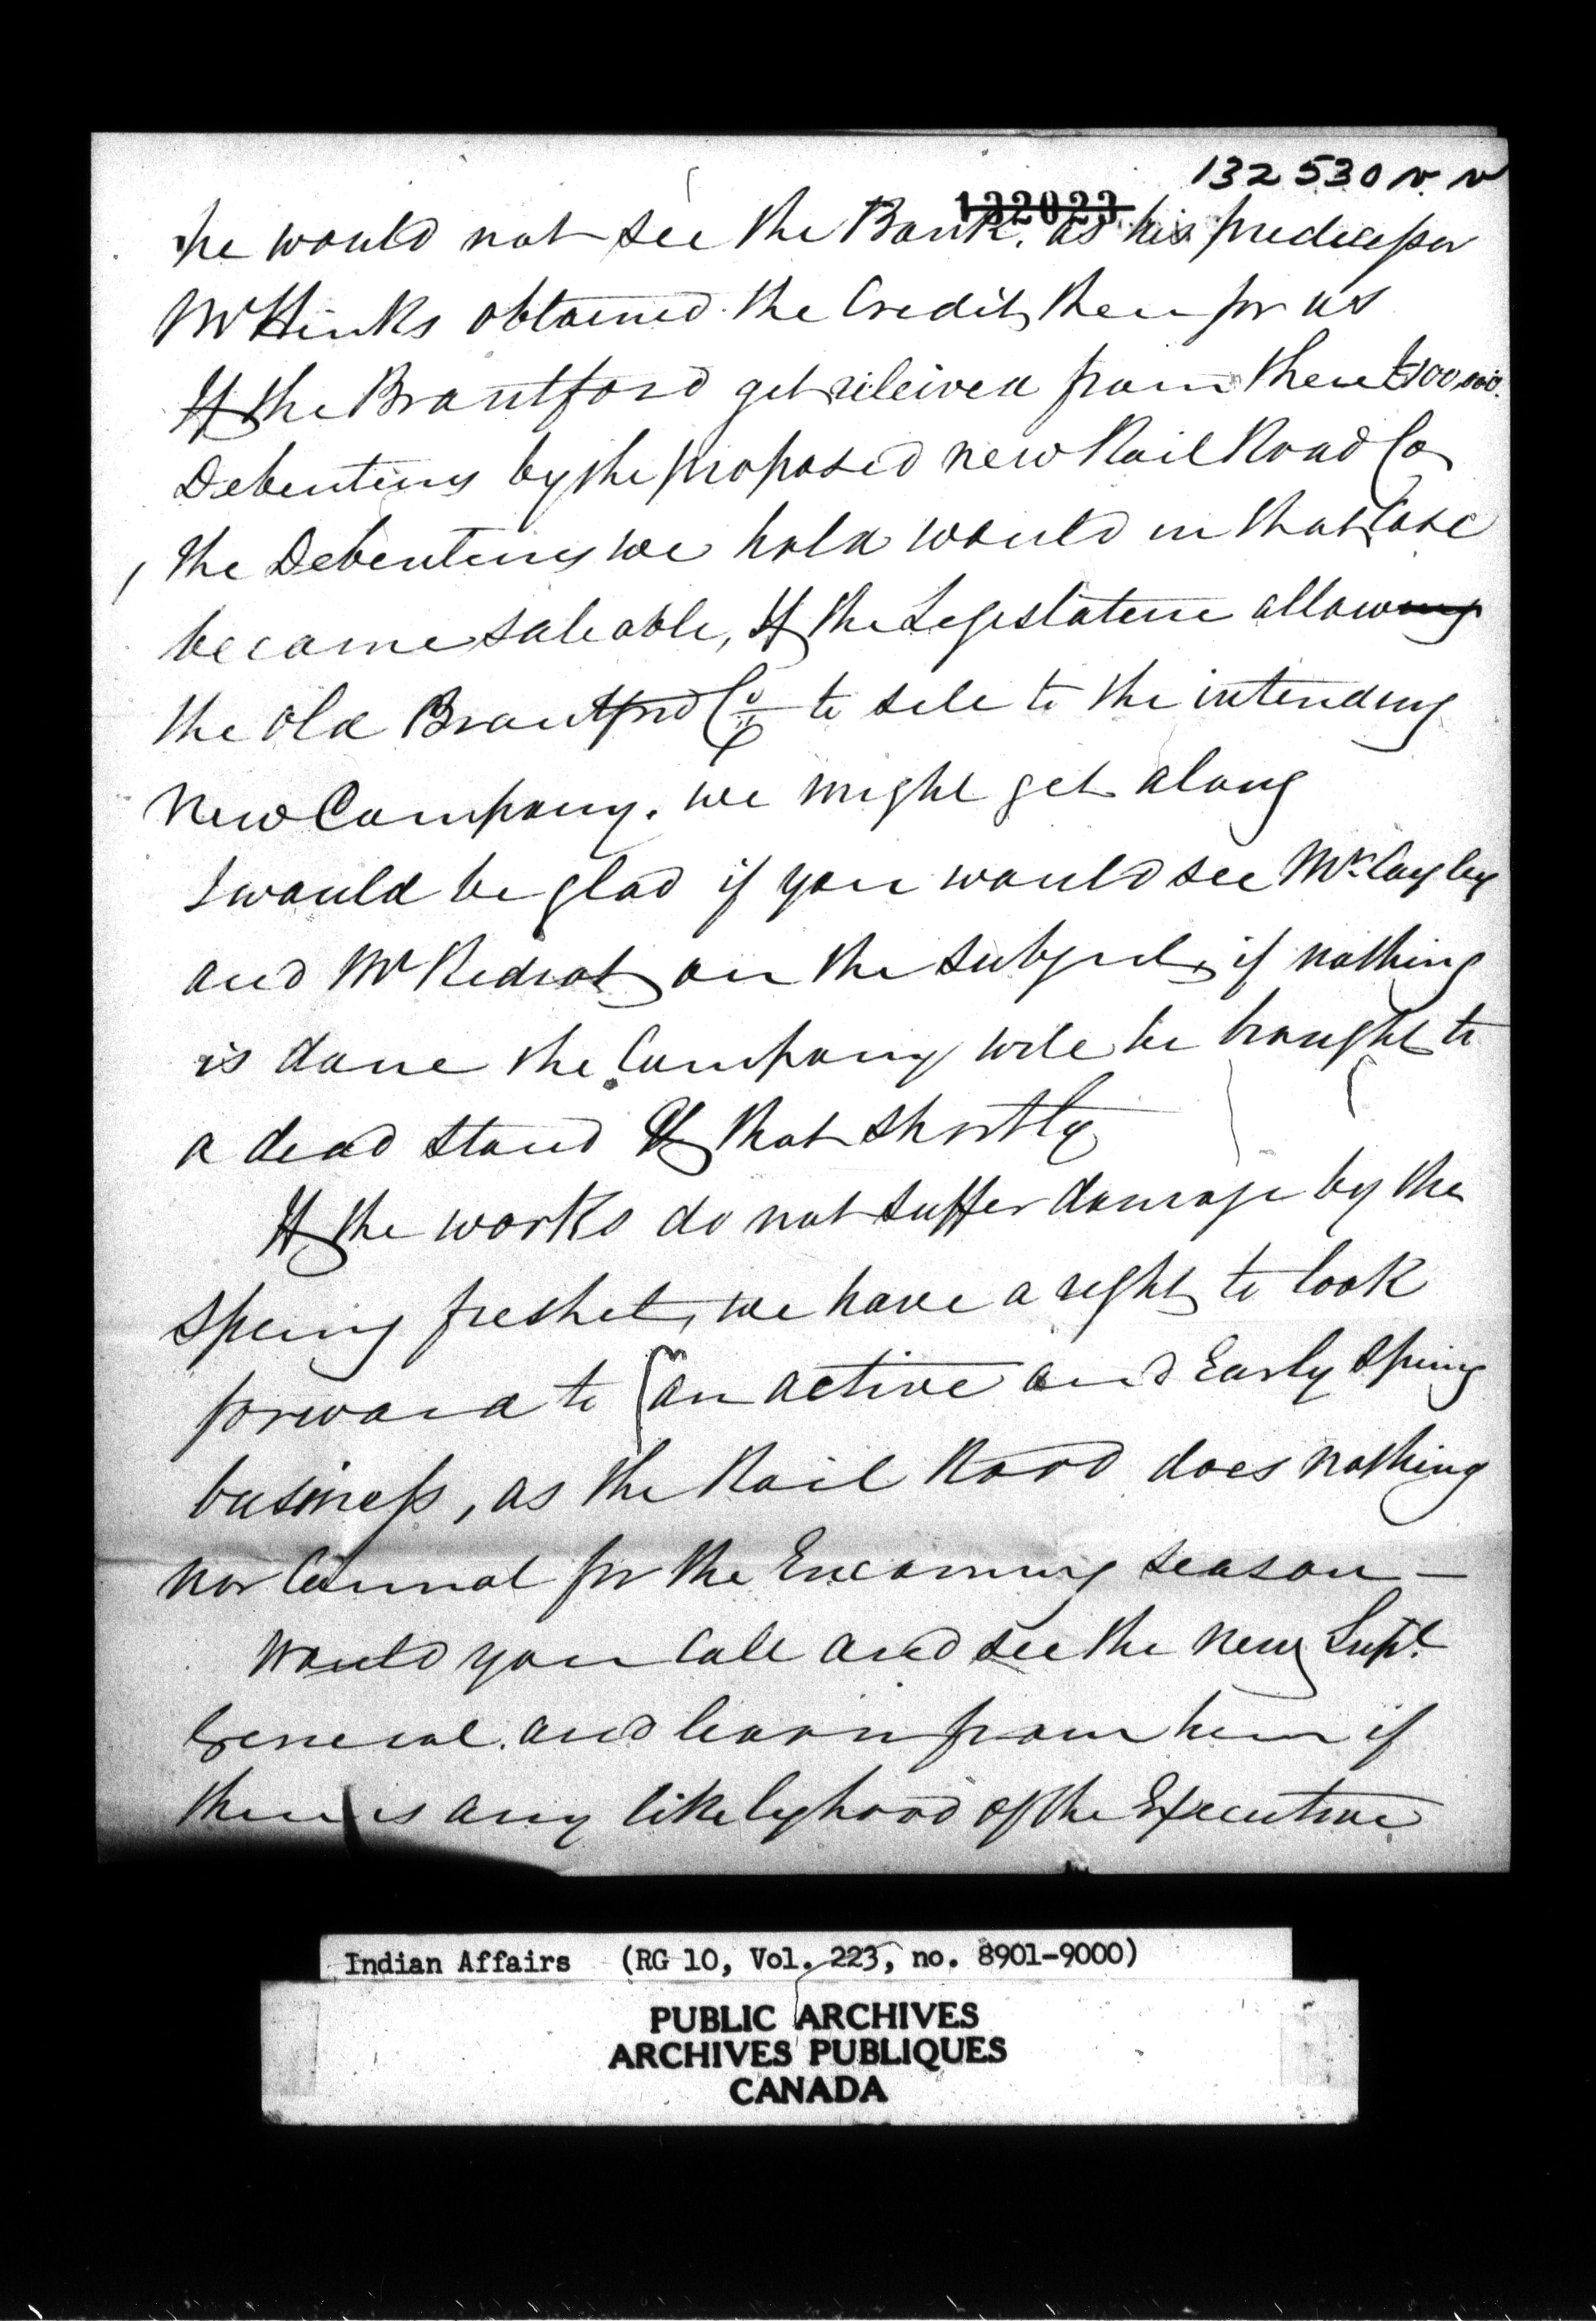 132 530 v v
132023
he would not see the Bank. as his predecessor
Mr Hinks obtained the Credit, then for us
If the Brantford get releived from there £100,000.
Debentures by the proposed new Rail Road Co
the Debentures we hold would in that Case
become saleable, If the Legislature allowing
the old Brantford Co to sell to the intending
New Company. we might get along
I would be glad if you would see Mr. Cayley
and Mr on the subject, if nothing
is done the Company will be brought to
a dead stand & that shortly
If the works do not suffer damage by the
spring freshet, we have a right to look
forward to an active and Early spring
business, as the Rail Road does nothing
nor Cannot for the Encoming season —
Would you Call and see the new Supt.
General. and learn from him if
there is any likelyhood of the Executive
Indian Affairs (RG 10, Vol. 223, no. 8901-9000)
PUBLIC ARCHIVES
ARCHIVES PUBLIQUES
CANADA